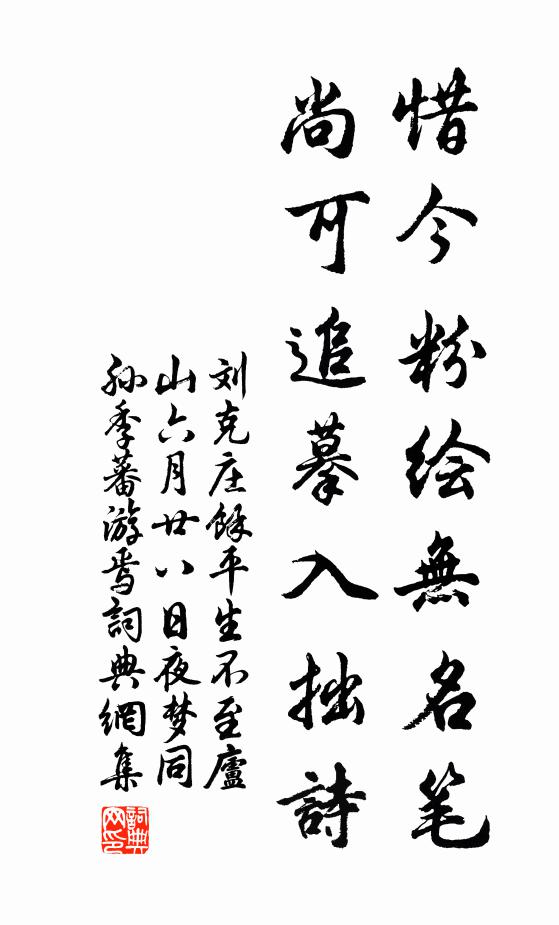 惜今粉绘無名笔
尚可追摹入拙詩
刘克庄餘平生不至廬
山六月廿八日夜梦同
孙季蕃游焉詞典網集
詞典网印